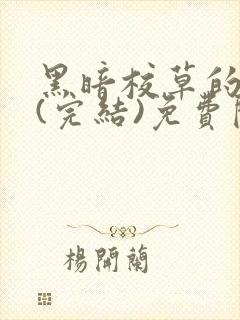 黑暗校草的
(完結)免費
楊開蘭